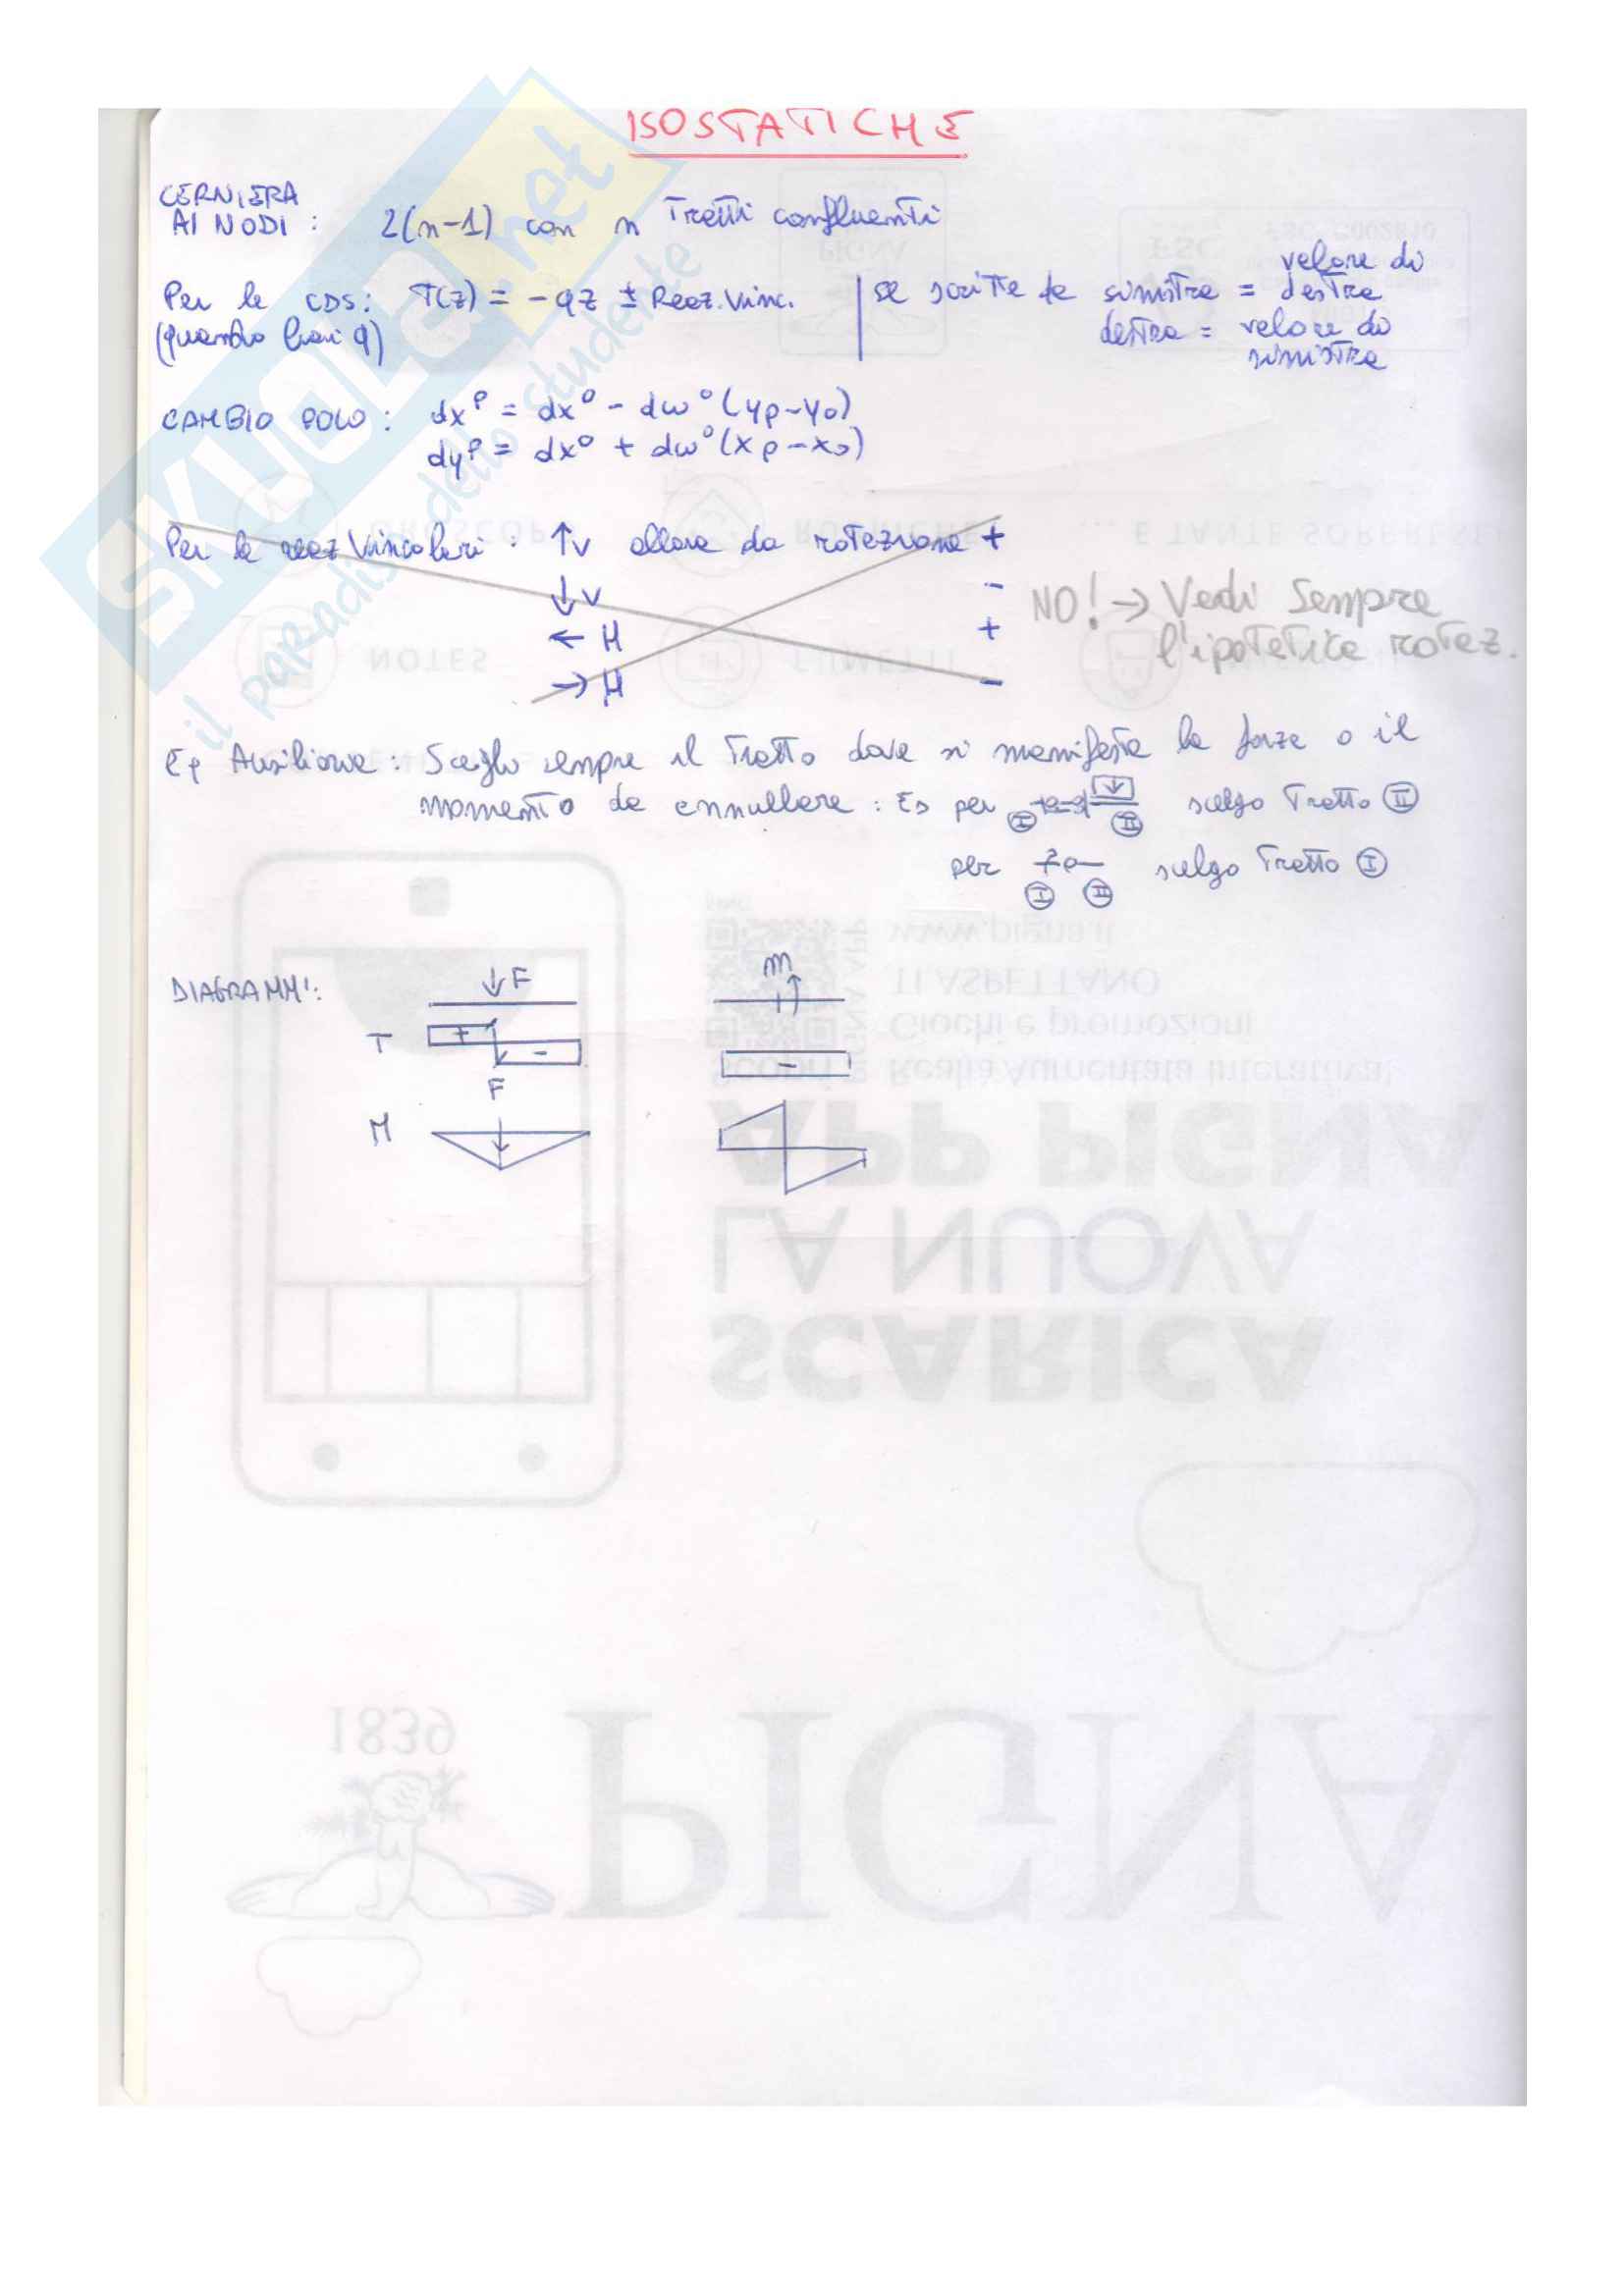 ISOSTATICHE
CERNIERA
AI NODI : 2(n-1) con n Tratti confluenti
Per le CDS: T(z) = - qz ± Reaz. Vinc. | se scritte da sinistra = valore di destra
(quando hai q) destra = valore di sinistra
CAMBIO POLO : dx^P = dx^o - dω^o (yp-yo)
dy^P = dx^o + dω^o (xp-xo)
Per le reaz Vincolari : ↑V allora da rotazione +
↓V -
← H +
→ H -
NO! → Vedi Sempre
l'ipotetica rotaz.
Eq Ausiliarie : Scelgo sempre il Tratto dove si manifesta la forza o il
momento da annullare : Es per I II scelgo Tratto II
per I II scelgo Tratto I
DIAGRAMMI: ↓F m
T + - -
F
M
SKUOLA.net
il paradiso dello studente
ROMANCHE
... E TANTE SORPRESE!
NOTES
FUMETTI
www.pigna.it
TI ASPETTANO
Giochi e promozioni
Realtà Aumentata Interattiva,
APP PIGNA
LA NUOVA
SCARICA
1839
PIGNA